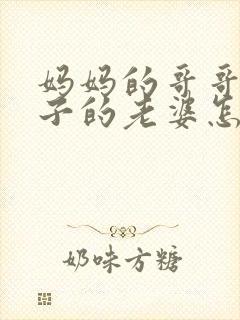 妈妈的哥哥
子的老婆怎
奶味方糖